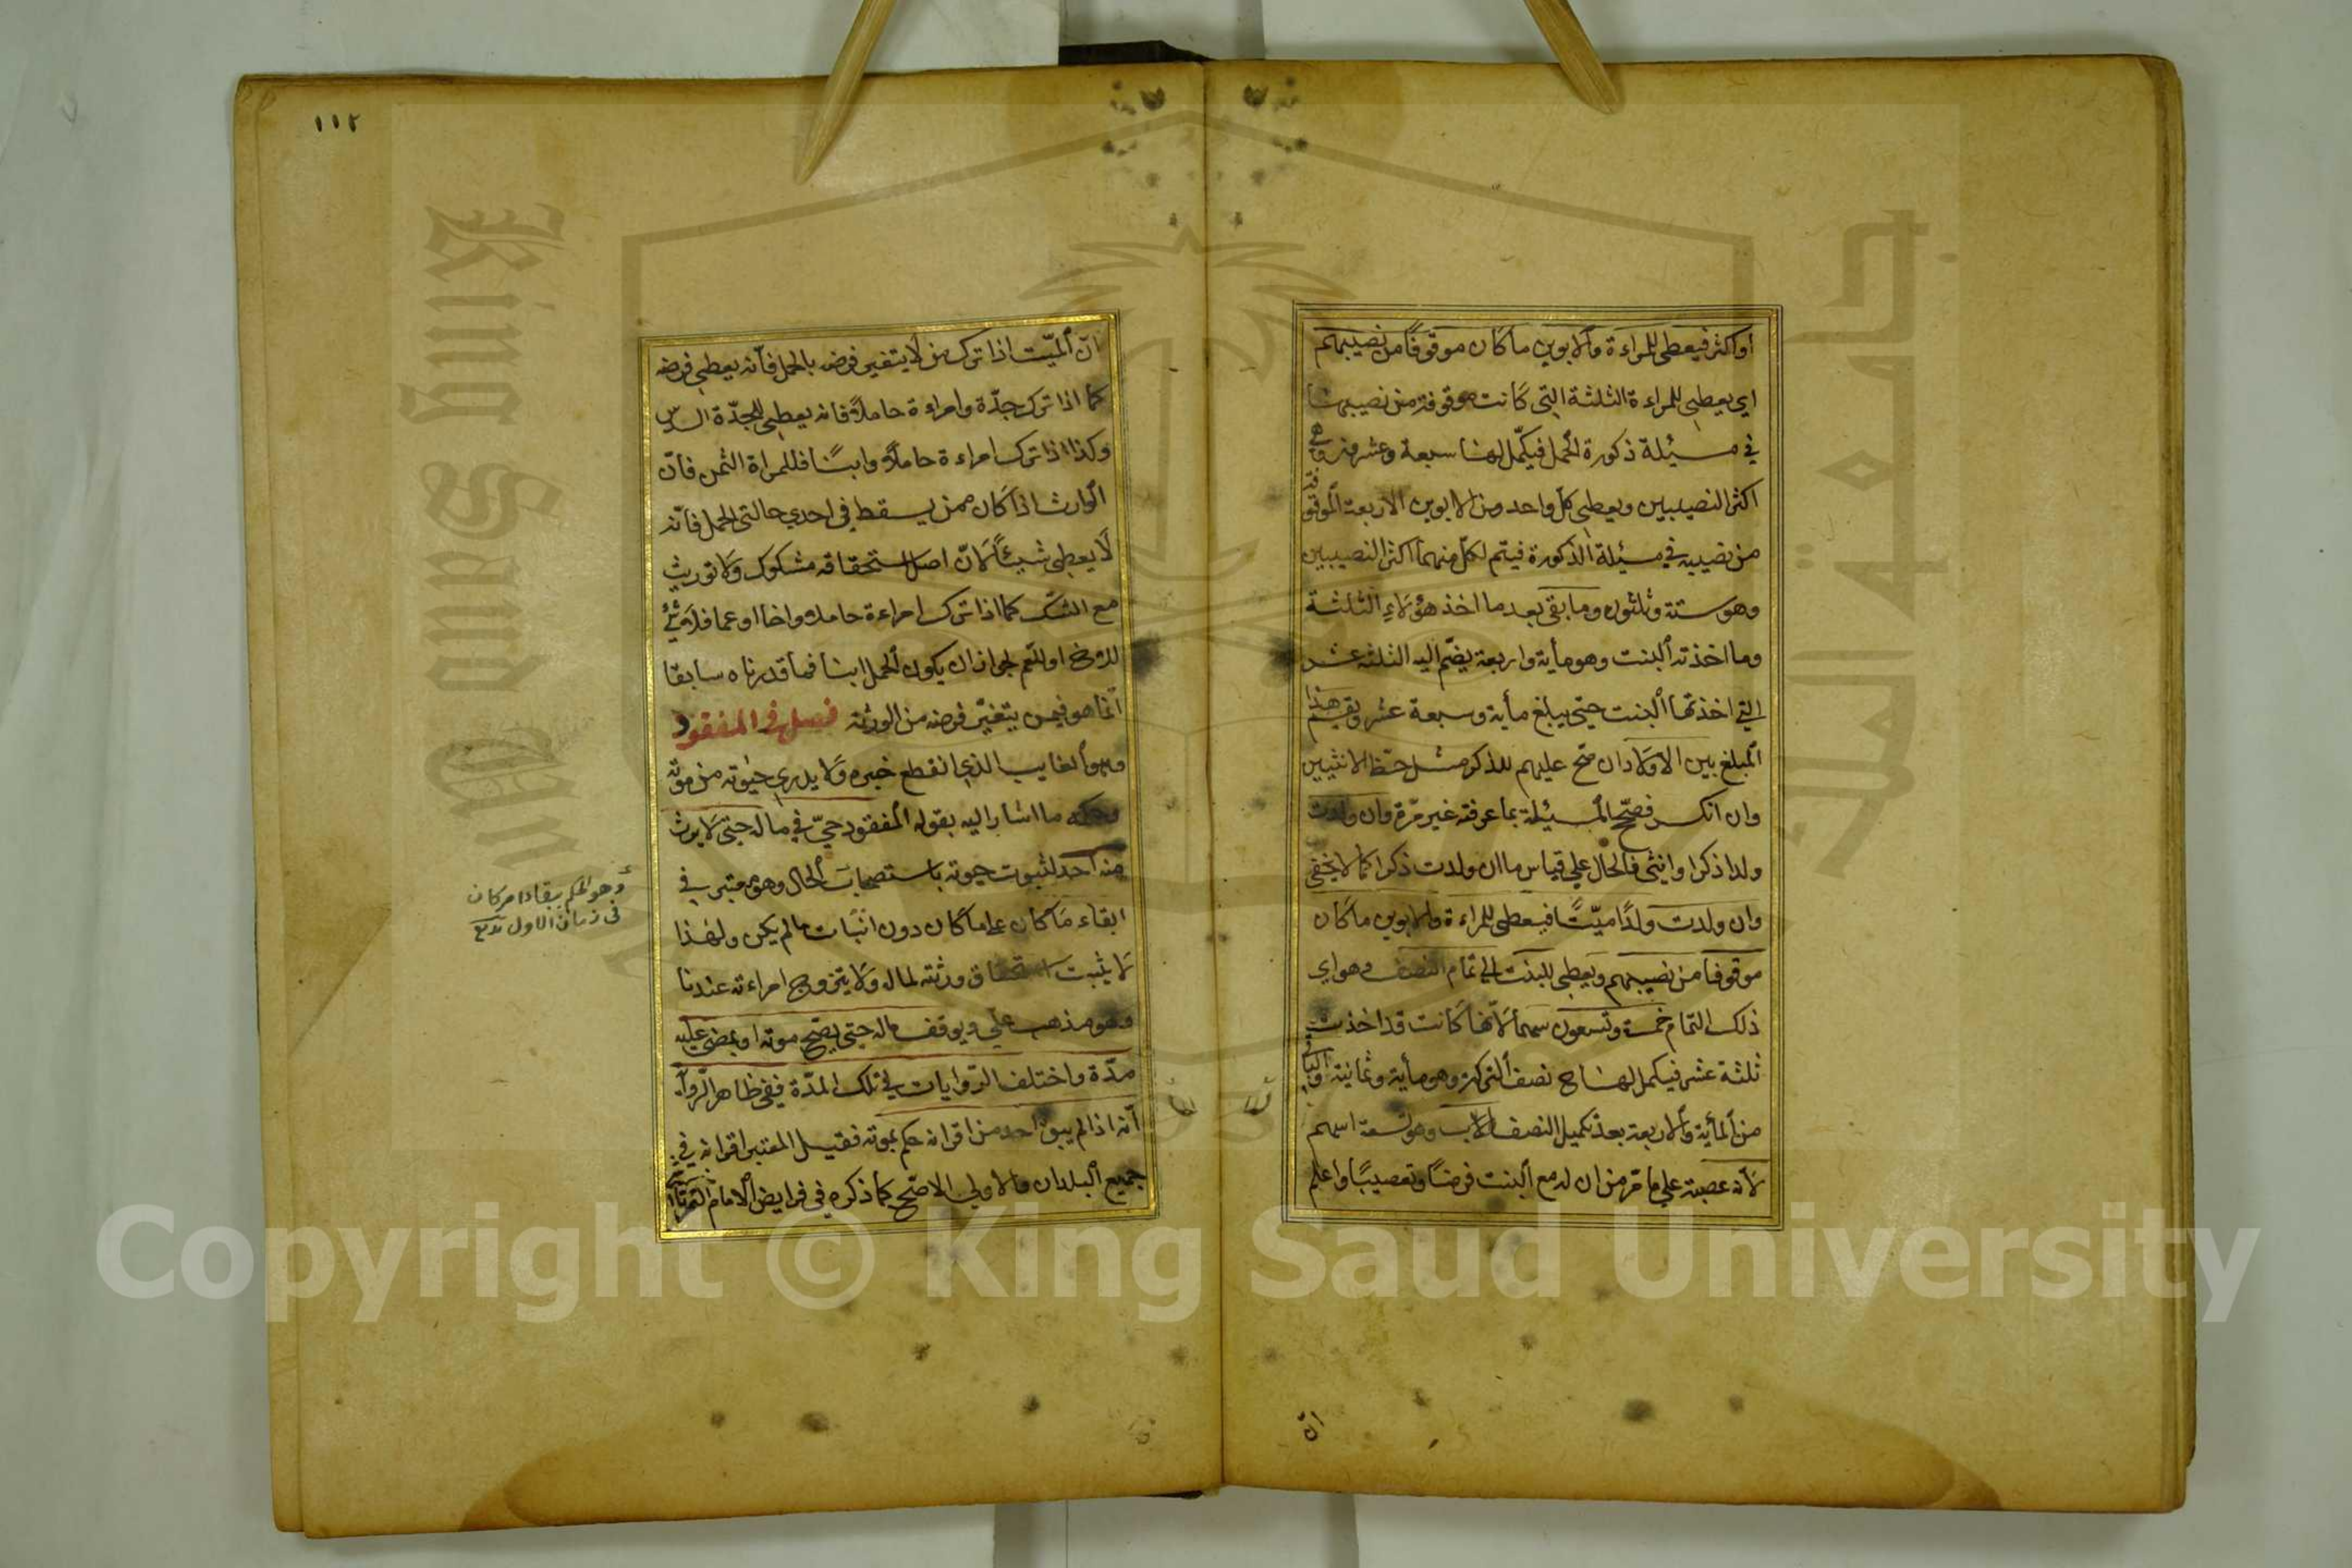 اواكثر فيعطى للمراءة والابوين ما كان موقوفا من نصيبهم
اي يعطي للمراءة الثلثة التي كانت موقوفة من نصيبها
في مسئلة ذكورة الحمل فيكمل لها سبعة وعشرون وهي
اكثر النصيبين ويعطي كل واحد من الابوين الاربعة الموقوفة
من نصيبه في مسئلة الذكورة فيتم لكل منهما اكثر النصيبين
وهو ستة وثلثون وما بقي بعد ما اخذ هؤلاء الثلثة
وما اخذته البنت وهو مأية واربعة يضم اليه الثلثة عشر
التي اخذتها البنت حتى يبلغ مأية وسبعة عشر ويقسم هذا
المبلغ بين الاولاد ان صح عليهم للذكر مثل حظ الانثيين
وان انكسر فصحح المسئلة بما عرفته غير مرة وان ولدت
ولدا ذكرا وانثى فالحال علي قياس ما ان ولدت ذكرا كما لا يخفى
وان ولدت ولدًا ميّتًا فيعطى للمراءة والابوين ما كان
موقوفا من نصيبهم ويعطي للبنت الي تمام النصف وهو اي
ذلك التمام خمسة وتسعون سهما لانها كانت قد اخذت
ثلثة عشر فيكمل لها ح نصف التركة وهو مأية وثمانية والباقي
من المأية والاربعة بعد تكميل النصف للاب وهو تسعة اسهم
لانه عصبة علي ما مر من ان له مع البنت فرضًا وتعصيبًا واعلم
ان
١١٢
ان الميّت اذا ترك من لا يتغير فرضه بالحمل فانه يعطي فرضه
كما اذا ترك جدّة وامراءة حاملاً فانه يعطي للجدّة السدس
وكذا اذا ترك امراءة حاملاً وابنًا فللمراة الثمن فان
الوارث اذا كان ممن يسقط في احدي حالتي الحمل فانه
لا يعطي شيئاً لانّ اصل استحقاقه مشكوك ولا توريث
مع الشك كما اذا ترك امراءة حاملا واخا او عما فلا شئ
للاخ او للعم لجواز ان يكون الحمل ابنا فما قدرناه سابقا
انما هو فيمن يتغيّر فرضه من الورثة فصل في المفقود
وهو الغايب الذي انقطع خبره ولا يدري حيوته من موته
وحكمه ما اشار اليه بقوله المفقود حيّ في ماله حتى لا يرث
منه احد لثبوت حيوته باستصحاب الحال وهو معتبر في
ابقاء ما كان علي ما كان دون اثبات ما لم يكن ولهذا
لا يثبت استحقاق ورثته لماله ولا يتزوج امراءته عندنا
وهو مذهب علي ويوقف ماله حتى يصح موته او يمضي عليه
مدّة واختلف الروايات في تلك المدّة ففي ظاهر الرواية
انه اذا لم يبق احد من اقرانه حكم بموته فقيل المعتبر اقرانه في
جميع البلدان والاولي الاصح كما ذكره في فرايض الامام التمرتاشي
وهو الحكم ببقاء امر كان
في زمان الاول
Copyright © King Saud University
King Saud Un
جامعة الملك